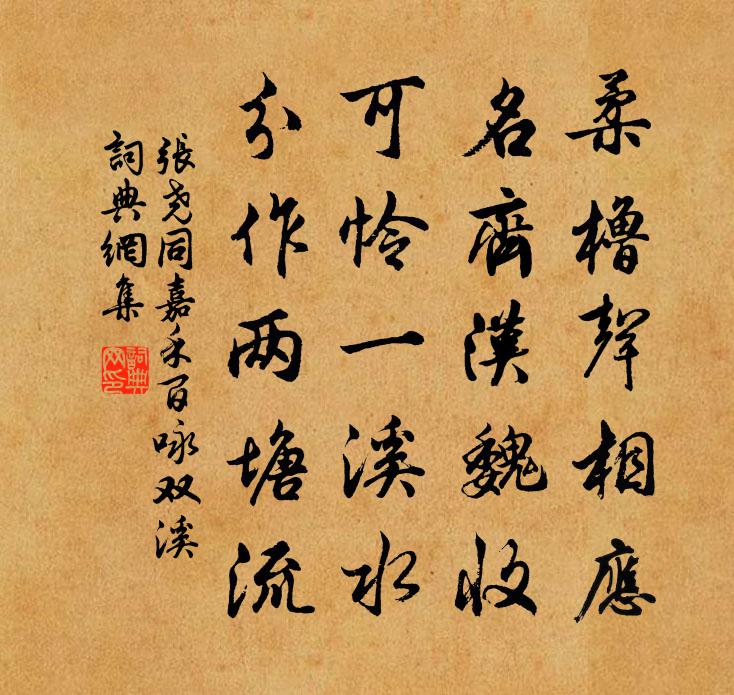 柔櫓聲相應
名齊漢魏收
可怜一溪水
分作两塘流
張尧同嘉禾百咏双溪
詞典網集
詞典網印